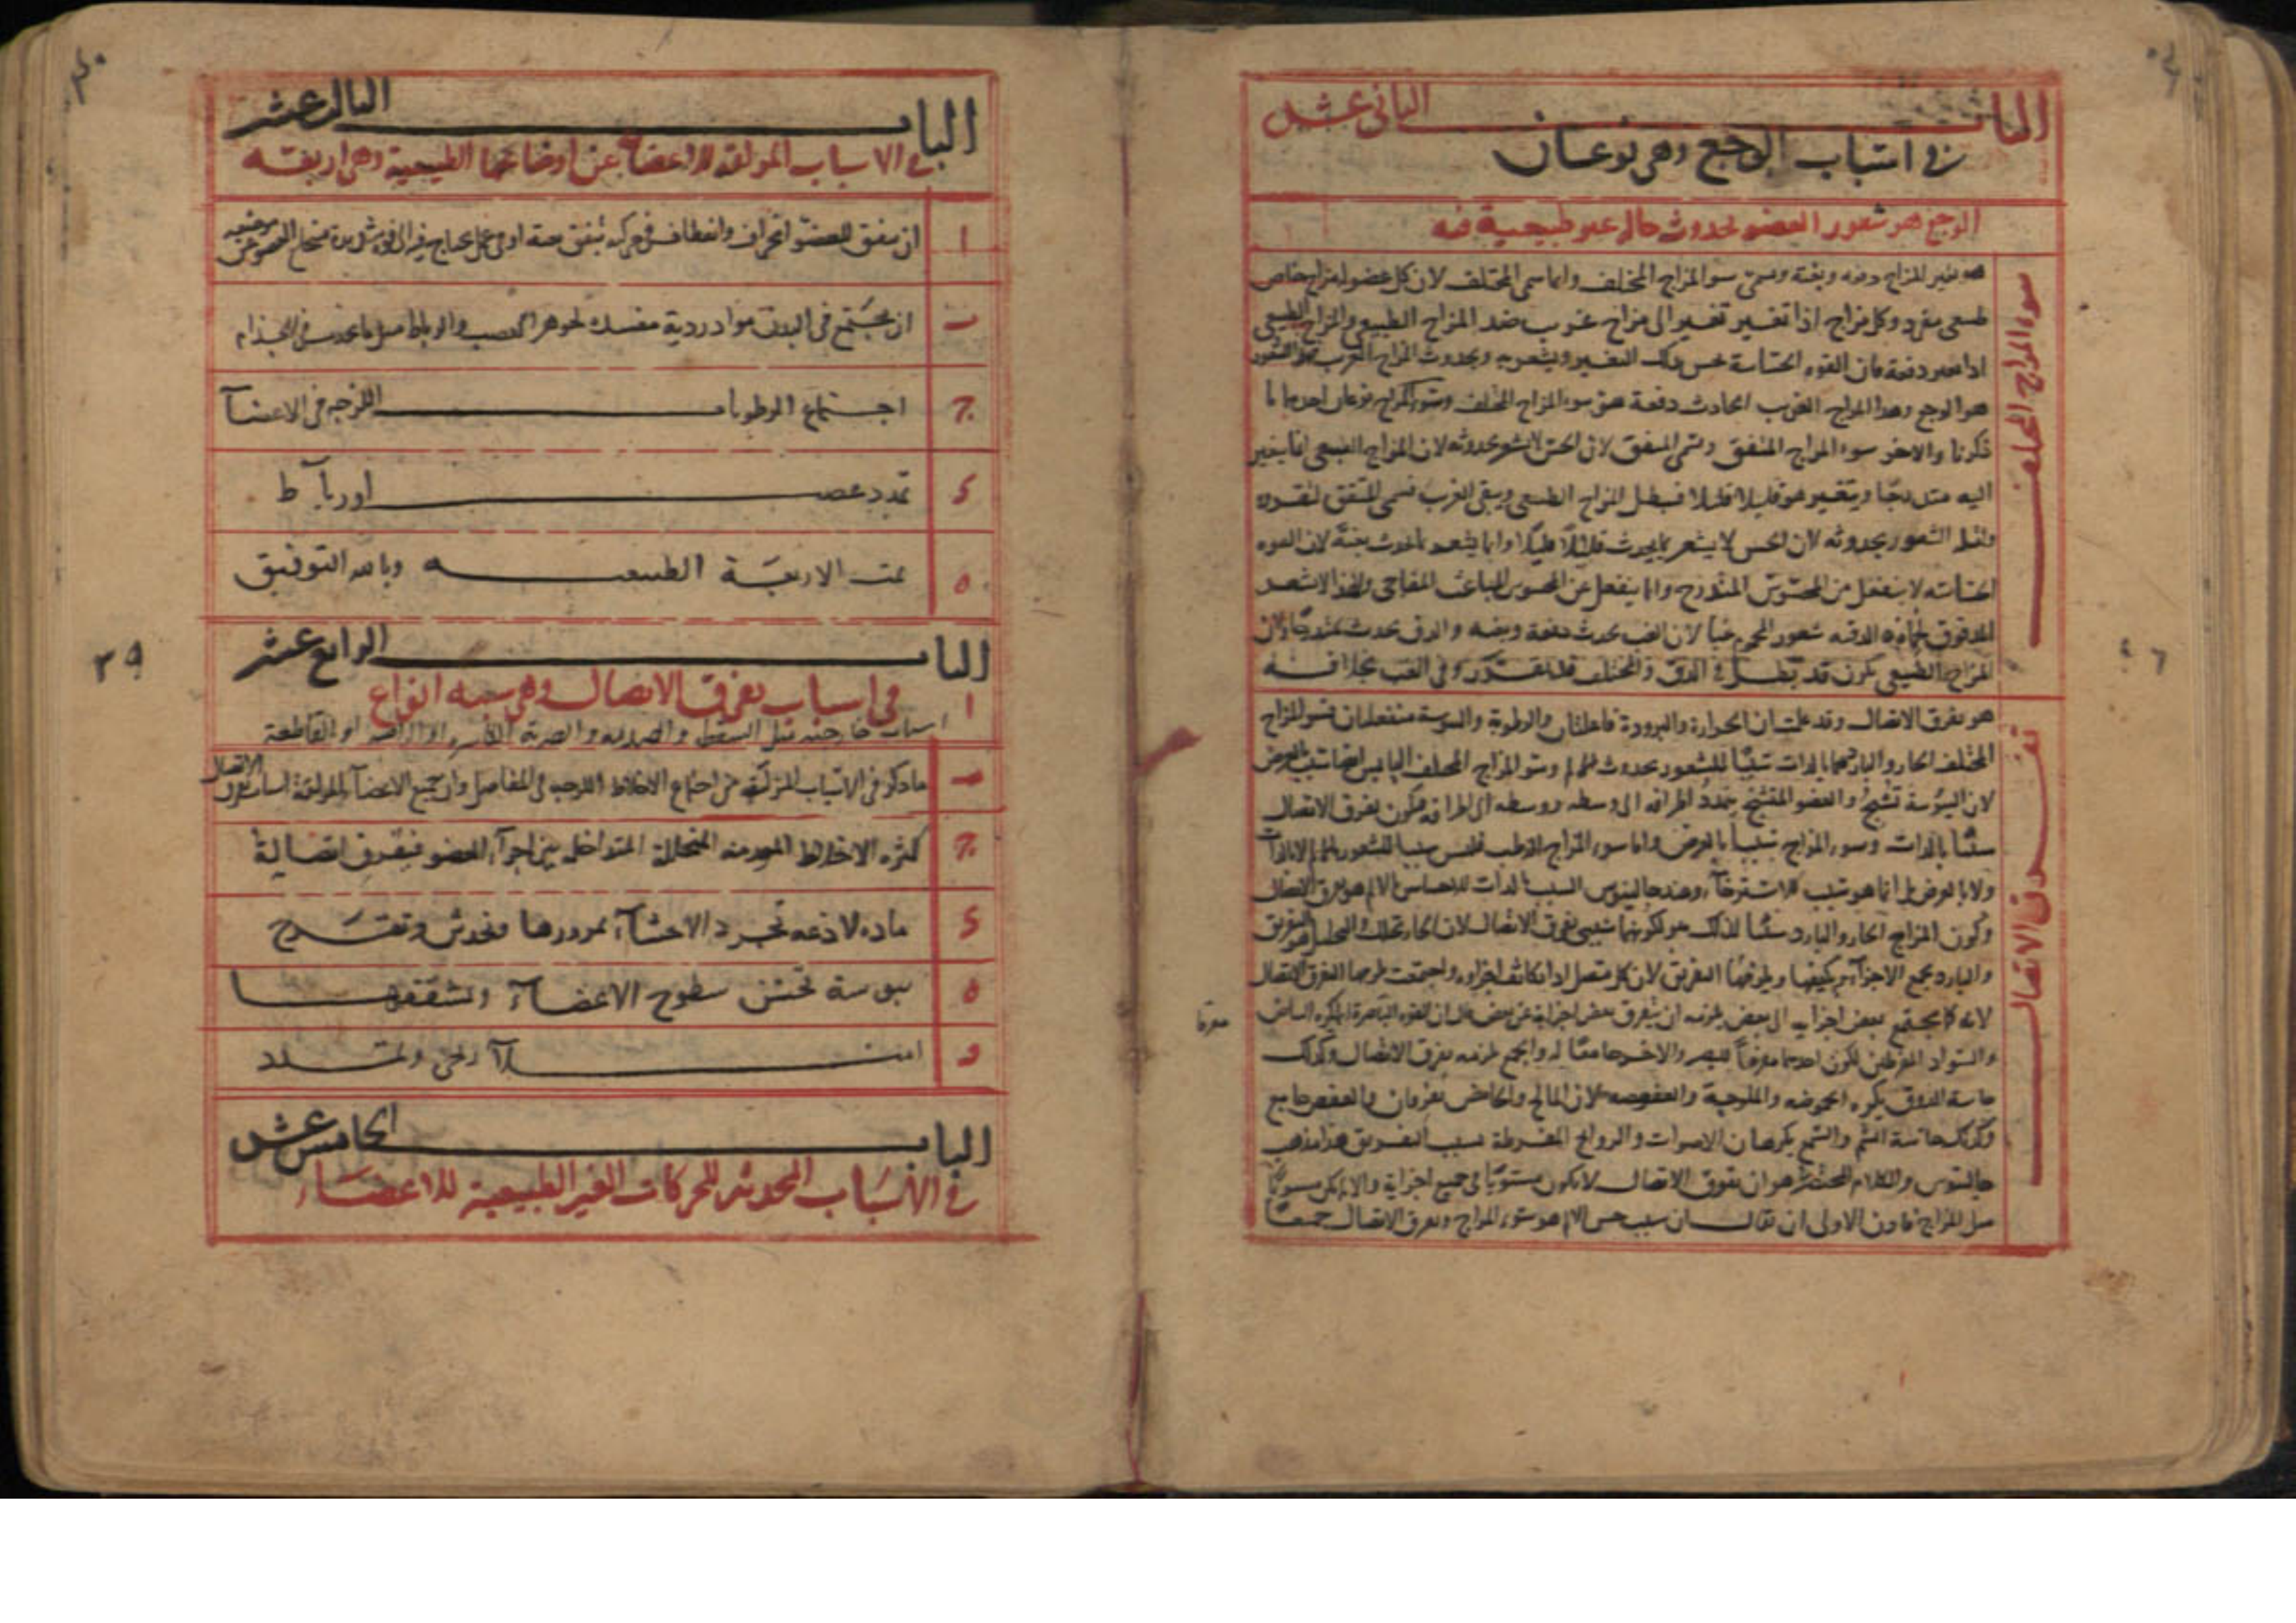 الباب الثاني عشر
في اسباب الوجع وهي نوعان
الوجع هو شعور العضو لحدوث حال غير طبيعية فيه
سوء المزاج المختلف
هو تغير المزاج دفعه وبغتة وسمى سو المزاج المختلف وانما سمى المختلف لان كل عضو له مزاج خاص
طبيعي مفرد وكل مزاج اذا تغير تغير الى مزاج غريب ضد المزاج الطبيعي والمزاج الطبيعي
اذا تغير دفعة فان القوه الحساسة تحس بذلك التغير ويشعر به وبحدوث المزاج الغريب
هو الوجع وهذا المزاج الغريب الحادث دفعة هو سوء المزاج المختلف وسوء المزاج نوعان احدهما ما
ذكرنا والاخر سوء المزاج المتفق وسمى المتفق لان الحس لا يشعر بحدوثه لان المزاج الطبيعي انما يتغير
اليه متدرجًا ويتغير هو قليلا قليلا فيبطل المزاج الطبيعي ويبقى الغريب فسمى المتفق لتفرده
الشعور بحدوثه لان الحس لا يشعر بما يحدث قليلًا قليلًا وانما يشعر بما يحدث بغتة لان القوه
الحساسه لا ينفعل من المحسوس المتدرج وانما ينفعل عن المحسوس المباغت المفاجى ولهذا لا يشعر
المدقوق بحماه الدقيه شعور المحموم غبا لان الغب يحدث دفعة وبغته والدق يحدث متدرجا ولان
المزاج الطبيعي يكون قد بطل في الدق والمختلف قد تقرر وفي الغب بخلافه
تفرق الاتصال
هو تفرق الاتصال وقد علمت ان الحرارة والبرودة فاعلتان والرطوبة واليبوسة منفعلتان فسو المزاج
المختلف الحار والبارد هما بالذات سببًا للشعور بحدوث الالم وسو المزاج المختلف اليابس انما سبب بالعرض
لان اليبوسة تشنج والعضو المتشنج يتمدد اطرافه الى وسطه ووسطه الى اطرافه فيكون تفرق الاتصال
سببًا بالذات وسوء المزاج سببًا بالعرض واما سوء المزاج الرطب فليس سببا للشعور بالالم لا بالذات
ولا بالعرض انما هو سبب للاسترخاء وعند جالينوس السبب بالذات للاحساس بالالم هو تفرق الاتصال
وكون المزاج الحار والبارد سببًا لذلك هو لكونهما سببي تفرق الاتصال لان الحار يحلل والتحليل هو التفريق
والبارد يجمع الاجزاء ويكثفها ويلزمها التفريق لان كل متصل اذا تكاثف اجزاوه واجتمعت لزمها التفرق الاتصال
لانه كما يجتمع بعض اجزايه الى بعض يلزمه ان يتفرق بعض اجزايه عن بعض قال ان القوه الباصرة انما تكره البياض
والسواد المفرطين لكون احدهما مفرقًا للبصر والاخر جامعًا له والجمع يلزمه تفرق الاتصال وكذلك
حاسة الذوق يكره الحموضه والملوحة والعفوصه لان المالح والحامض يفرقان والعفص جامع
وكذلك حاسة الشم والسمع يكرهان الاصوات والروايح المفرطة بسبب التفريق هذا مذهب
جالينوس والكلام المختصر هو ان تفرق الاتصال لا يكون مستويًا في جميع اجزايه والالم يكون مستويًا
مثل المزاج فاذن الاولى ان يقال ان سبب حس الالم هو سوء المزاج وتفرق الاتصال جميعًا
مفرقا
٤٦
الباب الثالث عشر
في الاسباب المزلقه للاعضا عن اوضاعها الطبيعية وهي اربعه
ا ان يتفق للعضو انحراف وانعطاف في حركه
ب ان يجتمع في البدن مواد ردية مفسدة لجوهر العصب والرباط مثل ما يحدث في الجذام
ج اجتماع الرطوبات اللزجه في الاعضآ
د تمدد عصب او رباط
ه تمت الاربعة الطبيعيه وبالله التوفيق
الباب الرابع عشر
في اسباب تفرق الاتصال وهي سته انواع
ا اسباب خارجيه مثل السقطه والصدمه والضربة الكاسره او الراضه او القاطعة
ب ما ذكر في الاسباب المزلقه من اجتماع الاخلاط اللزجه في المفاصل وان جميع الاعضآ المزلقة اسباب تفرق الاتصال
ج كثره الاخلاط المورمه المتحللة المتداخله بين اجزآ العضو فيفرق اتصاله
د ماده لاذعه تجرد الاحشآ بمرورها وتخدش وتقرح
ه يبوسة تخشن سطوح الاعضآ وتشققها
و امتلآ رخى وتمدد
الباب الخامس عشر
في الاسباب المحدثه للحركات الغير الطبيعية للاعضاء
٣٩